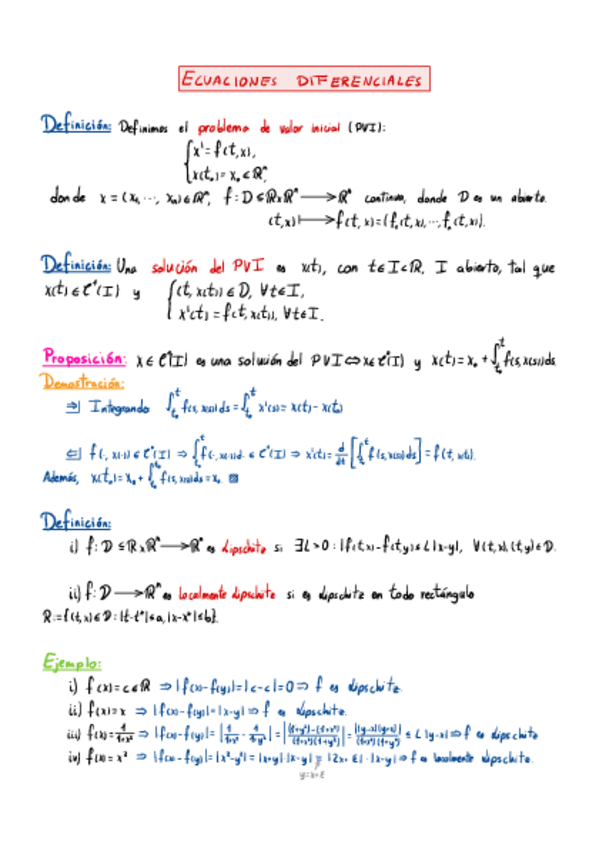 ECUACIONES DIFERENCIALES
Definición: Definimos el problema de valor inicial (PVI):
{x' = f(t,x),
x(t₀) = x₀ ∈ ℝⁿ,
donde x = (x₁, ..., xₙ) ∈ ℝⁿ, f: D ⊆ ℝxℝⁿ ⟶ ℝⁿ continua, donde D es un abierto.
(t,x) ⟼ f(t,x) = (f₁(t,x), ..., fₙ(t,x)).
Definición: Una solución del PVI es x(t), con t ∈ I ⊂ ℝ, I abierto, tal que
x(t) ∈ C¹(I) y {(t, x(t)) ∈ D, ∀t ∈ I,
x'(t) = f(t, x(t)), ∀t ∈ I.
Proposición: x ∈ C¹(I) es una solución del PVI ⇔ x ∈ C¹(I) y x(t) = x₀ + ∫ₜ₀ᵗ f(s, x(s)) ds
Demostración:
⇒| Integrando ∫ₜ₀ᵗ f(s, x(s)) ds = ∫ₜ₀ᵗ x'(s) ds = x(t) - x(t₀)
⇐| f(·, x(·)) ∈ C⁰(I) ⇒ ∫ₜ₀ᵗ f(·, x(·)) d· ∈ C¹(I) ⇒ x'(t) = d/dt [∫ₜ₀ᵗ f(s, x(s)) ds] = f(t, x(t)).
Además, x(t₀) = x₀ + ∫ₜ₀ᵗ⁰ f(s, x(s)) ds = x₀
Definición:
i) f: D ⊆ ℝxℝⁿ ⟶ ℝⁿ es Lipschitz si ∃L > 0 : |f(t,x) - f(t,y)| ≤ L|x-y|, ∀(t,x), (t,y) ∈ D.
ii) f: D ⟶ ℝⁿ es localmente Lipschitz si es Lipschitz en todo rectángulo
R := {(t,x) ∈ D : |t-t*| ≤ a, |x-x*| ≤ b}.
Ejemplo:
i) f(x) = c ∈ ℝ ⇒ |f(x) - f(y)| = |c-c| = 0 ⇒ f es Lipschitz.
ii) f(x) = x ⇒ |f(x) - f(y)| = |x-y| ⇒ f es Lipschitz.
iii) f(x) = 1/(1+x²) ⇒ |f(x) - f(y)| = |1/(1+x²) - 1/(1+y²)| = |((1+y²) - (1+x²))/((1+x²)(1+y²))| = |(y-x)(y+x)|/((1+x²)(1+y²)) ≤ L|y-x| ⇒ f es Lipschitz
iv) f(x) = x² ⇒ |f(x) - f(y)| = |x² - y²| = |x+y|·|x-y| = |2x+ε|·|x-y| ⇒ f es localmente Lipschitz.
y=x+ε